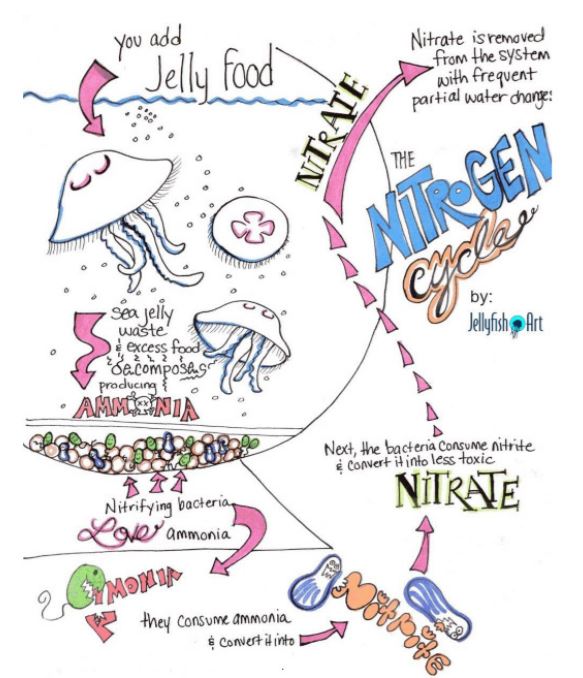 you add
Jelly Food
NITRATE
Nitrate is removed
from the system
with frequent
partial water changes
THE
NITROGEN
cycle
by:
Jellyfish Art
Sea jelly
waste
& excess food
decomposes
producing
AMMONIA
Nitrifying bacteria
Love ammonia
AMMONIA
they consume ammonia
& convert it into
Nitrite
Next, the bacteria consume nitrite
& convert it into less toxic
NITRATE